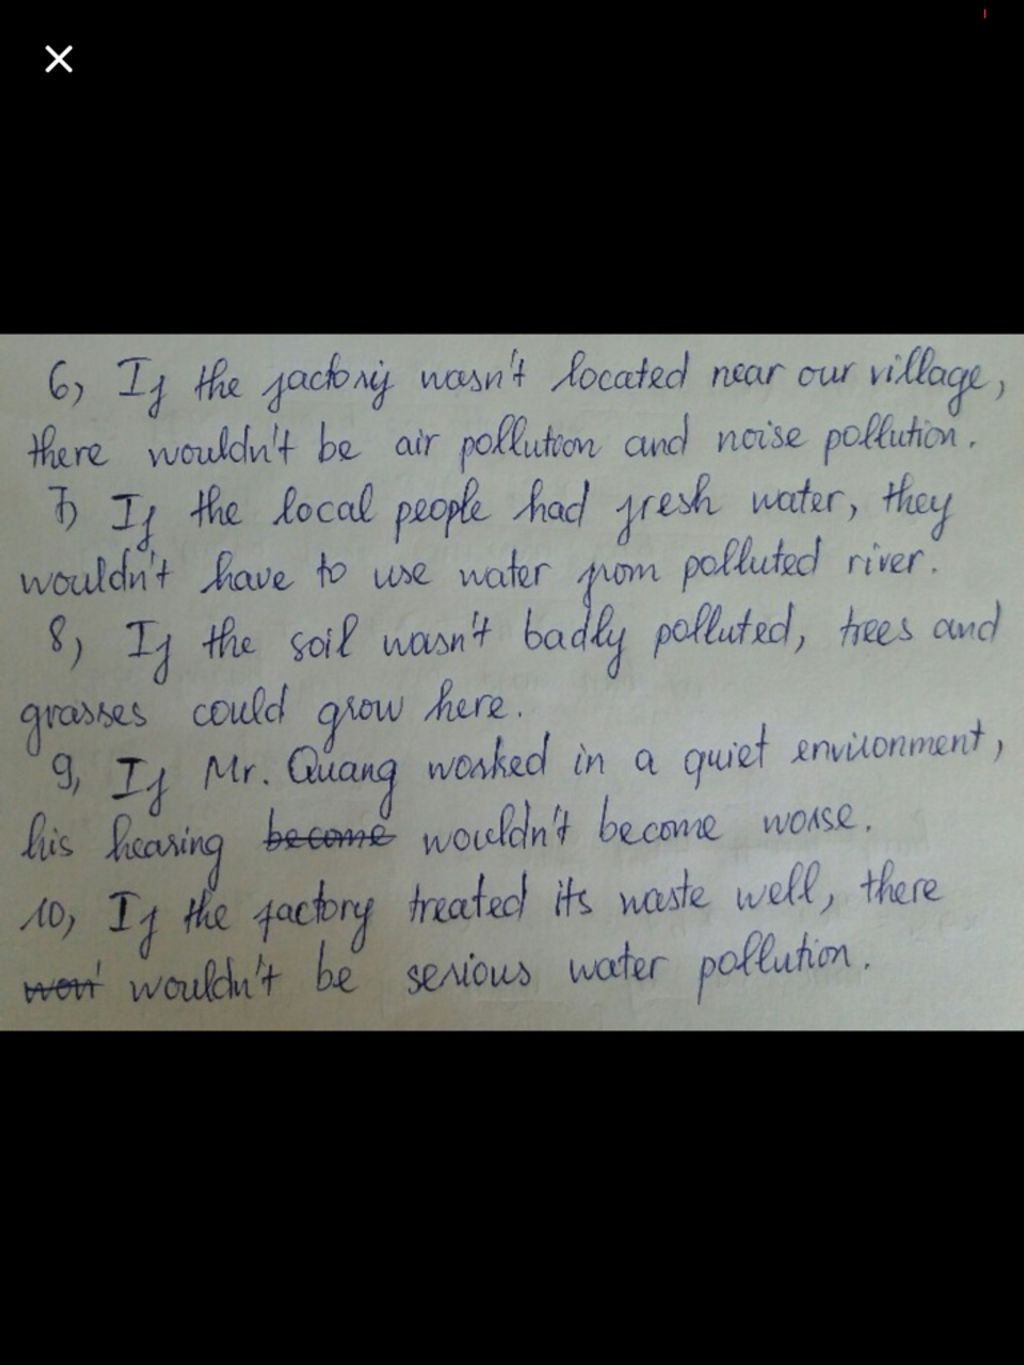 6, If the factory wasn't located near our village,
there wouldn't be air pollution and noise pollution.
7) If the local people had fresh water, they
wouldn't have to use water from polluted river.
8, If the soil wasn't badly polluted, trees and
grasses could grow here.
9, If Mr. Quang worked in a quiet environment,
his hearing become wouldn't become worse.
10, If the factory treated its waste well, there
won' wouldn't be serious water pollution.